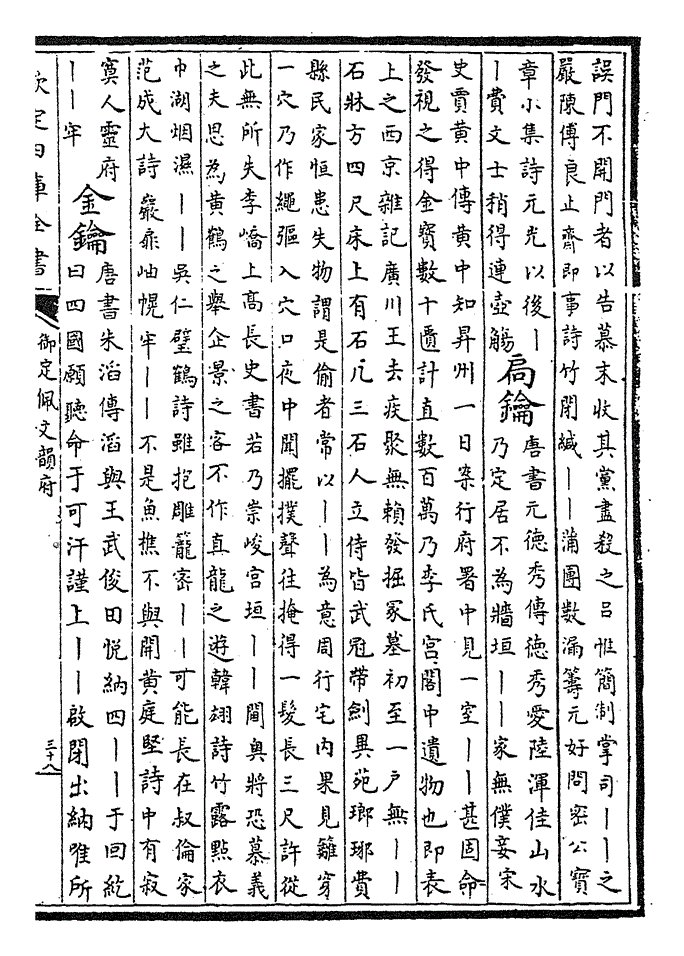 誤門不開門者以告慕末收其黨盡殺之呂惟簡制掌司｜｜之
嚴陳傅良止齋即事詩竹閉緘｜｜蒲團數漏籌元好問密公寶
章小集詩元光以後｜
｜費文士稍得連壺觴
扃鑰
唐書元德秀傳德秀愛陸渾佳山水
乃定居不為牆垣｜｜家無僕妾宋
史賈黄中傳黄中知昇州一日案行府署中見一室｜｜甚固命
發視之得金寶數十匱計直數百萬乃李氏宫閣中遺物也即表
上之西京雜記廣川王去疾聚無賴發掘冢墓初至一户無｜｜
石牀方四尺床上有石几三石人立侍皆武冠帶劍異苑瑯琊費
縣民家恒患失物謂是偷者常以｜｜為意周行宅内果見籬穿
一穴乃作繩彄入穴口夜中聞擺撲聲往掩得一髮長三尺許從
此無所失李嶠上髙長史書若乃崇峻宫垣｜｜閫奥將恐慕義
之夫思為黄鶴之舉企景之客不作真龍之遊韓翃詩竹露點衣
巾湖烟濕｜｜吳仁璧鶴詩雖抱雕籠密｜｜可能長在叔倫家
范成大詩巖扉岫幌牢｜｜不是魚樵不與開黄庭堅詩中有寂
寞人靈府
｜｜牢
金鑰
唐書朱滔傳滔與王武俊田悦納四｜｜于回紇
曰四國願聽命于可汗謹上｜｜啟閉出納唯所
欽定四庫全書
御定佩文韻府
三十八